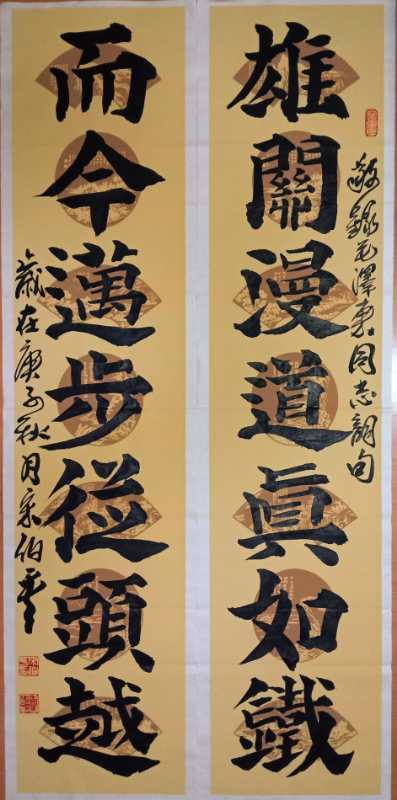 敬錄毛澤東同志詞句
雄關漫道真如鐵
而今邁步從頭越
歲在庚子秋月宋伯